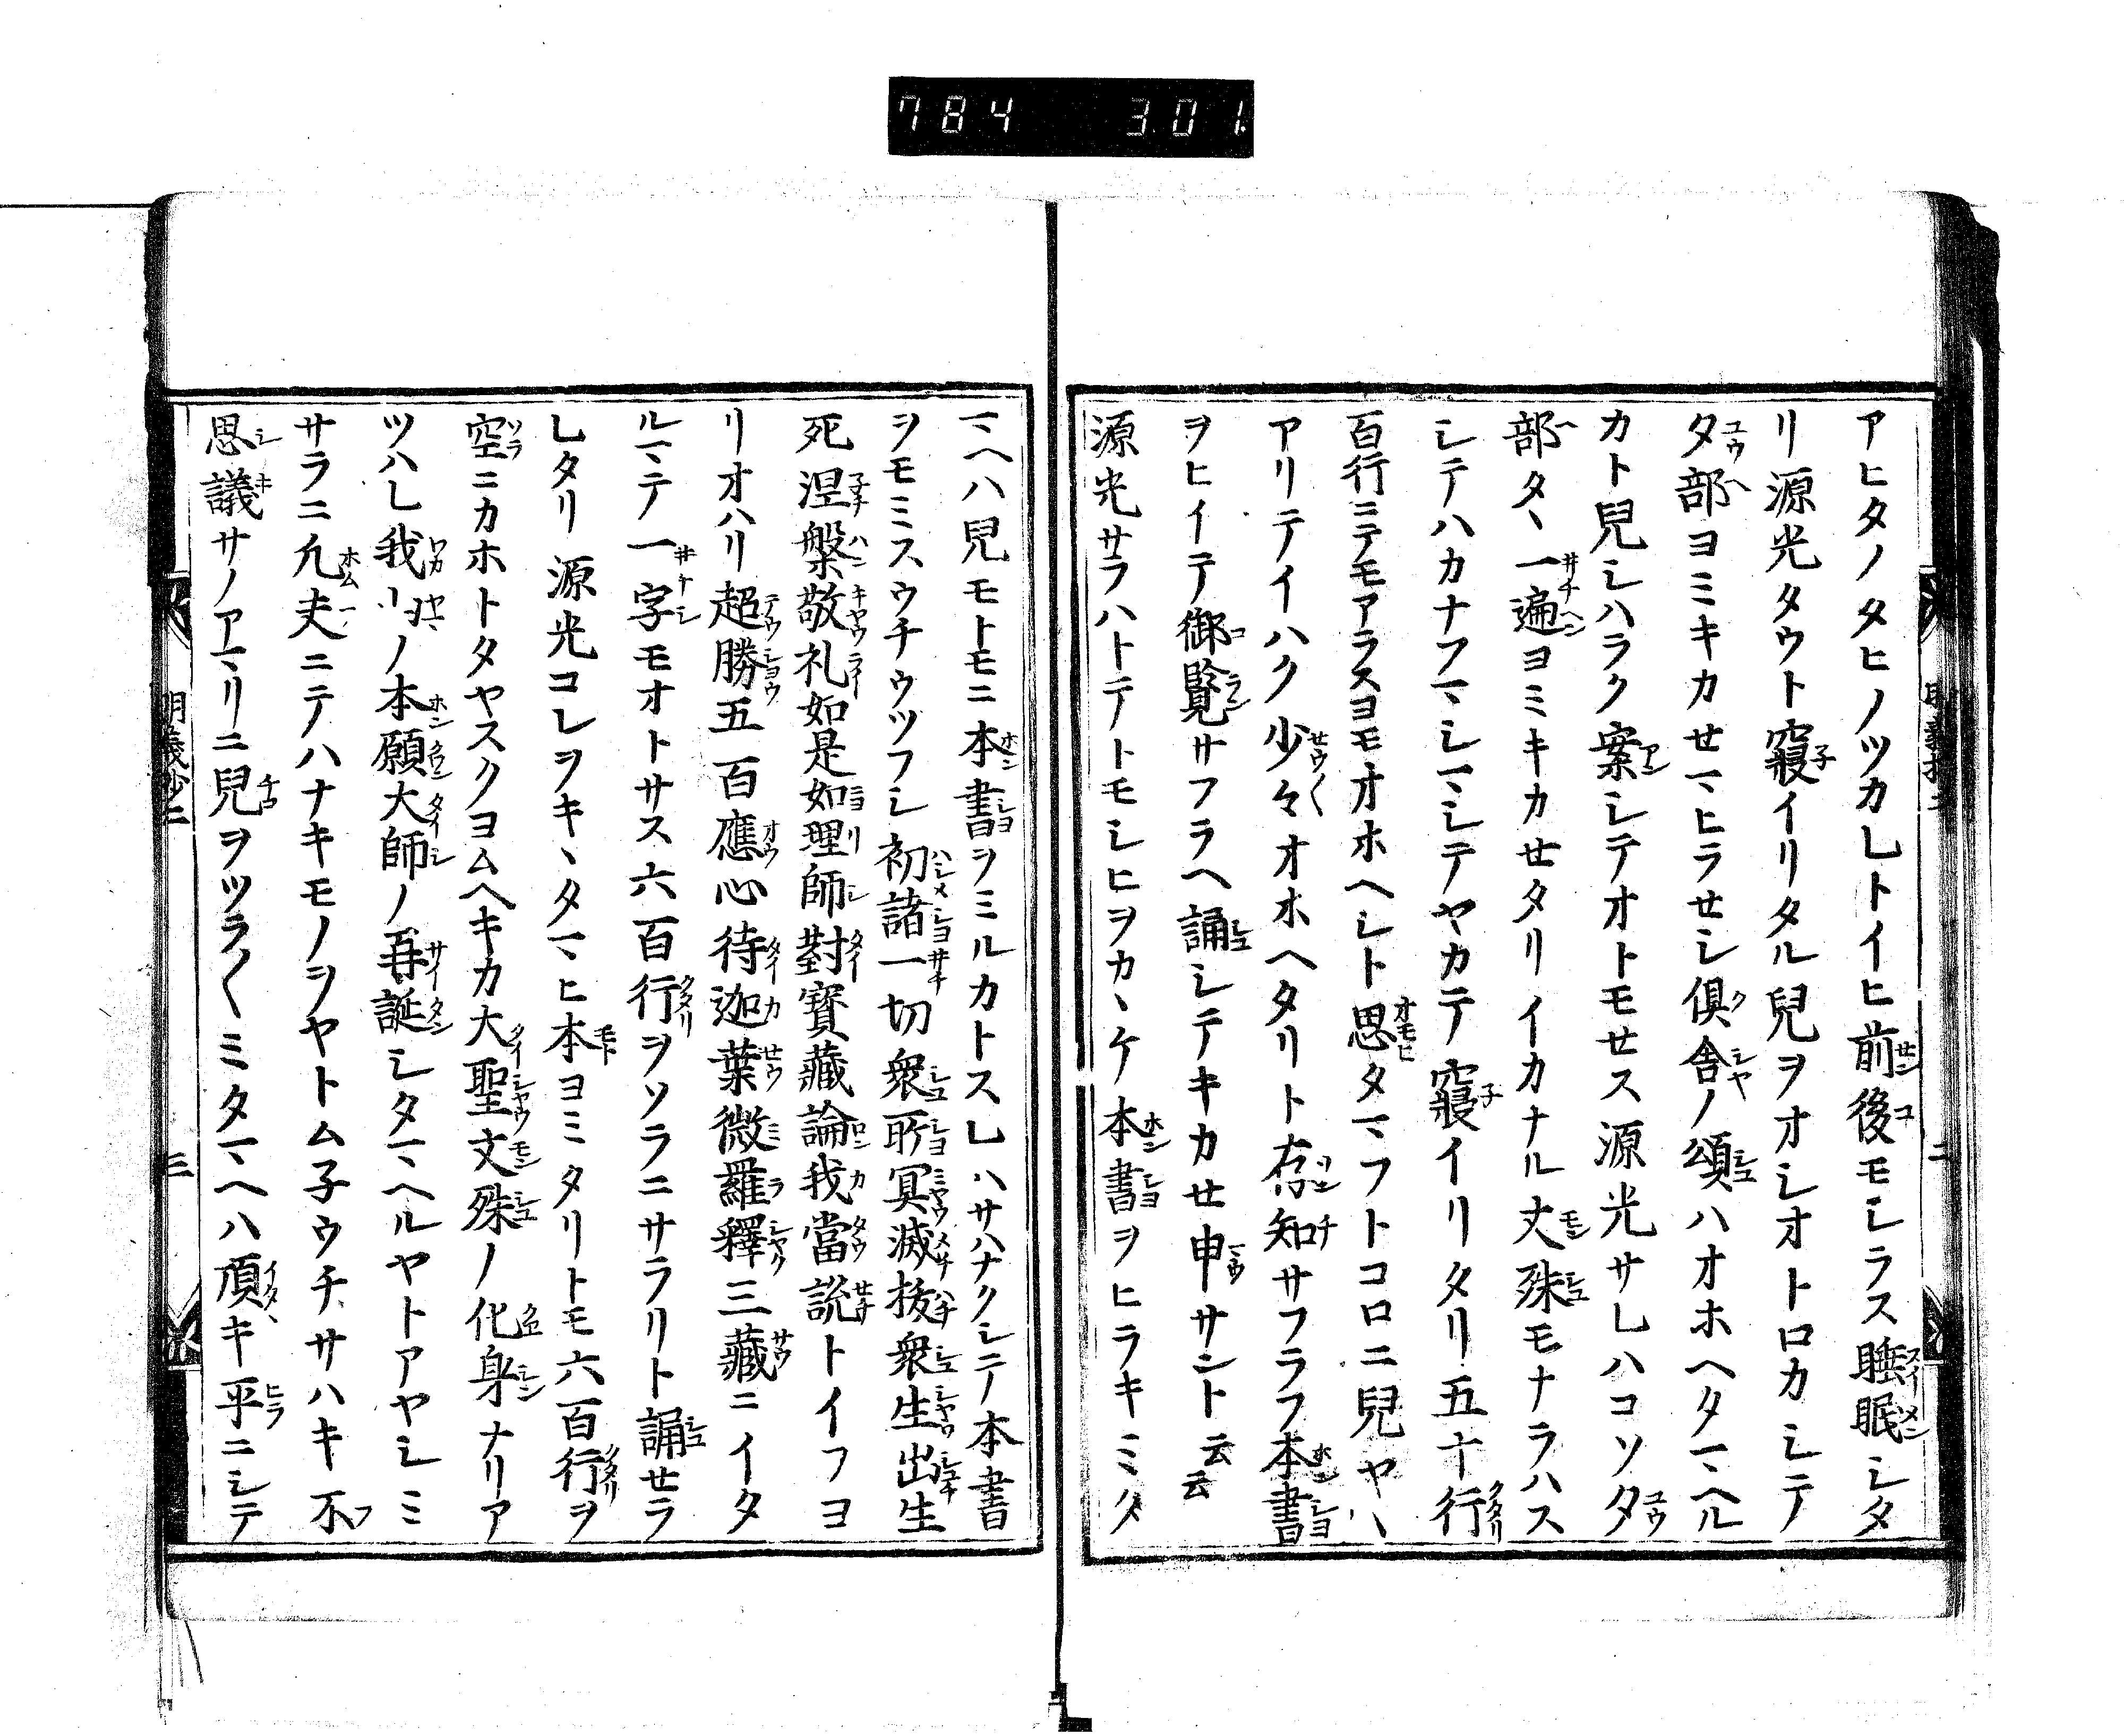 784 301
アヒタノタヒノツカレトイヒ前後モシラス睡眠シタ
リ源光タウト寢イリタル兒ヲオシオトロカシテ
夕部ヨミキカせマヒラせシ倶舎ノ頌ハオホヘタマヘル
カト兒シハラク案シテオトモせス源光サレハコソ夕
部タヽ一遍ヨミキカせタリイカナル文殊モナラハス
シテハカナフマシマシテヤカテ寢イリタリ五十行
百行ニテモアラスヨモオホヘシト思タマフトコロニ兒ヤヽ
アリテイハク少々オホヘタリト存知サフラフ本書
ヲヒイテ御覽サフラヘ誦シテキカせ申サント云云
源光サラハトテトモシヒヲカヽケ本書ヲヒラキミタ
マヘハ兒モトモニ本書ヲミルカトスレハサハナクシテ本書
ヲモミスウチウツフシ初諸一切衆所冥滅拔衆生出生
死涅槃敬礼如是如理師對寳藏論我當説トイフヨ
リオハリ超勝五百應心待迦葉微羅釋三藏ニイタ
ルマテ一字モオトサス六百行ヲソラニサラリト誦せラ
レタリ源光コレヲキヽタマヒ本ヨミタリトモ六百行ヲ
空ニカホトタヤスクヨムヘキカ大聖文殊ノ化身ナリア
ツハレ我山ノ本願大師ノ再誕シタマヘルヤトアヤシミ
サラニ凢夫ニテハナキモノヲヤトム子ウチサハキ不
思議サノアマリニ兒ヲツラ〱ミタマヘハ頂キ平ニシテ
明義抄二
二
明義抄二
三